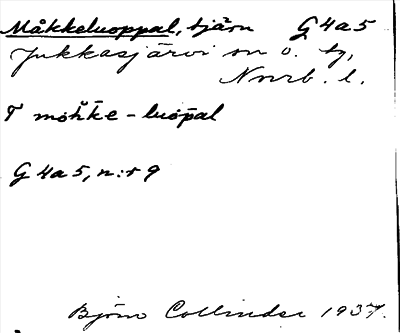 Måkkeluoppal, tjärn G4a5
Jukkasjärvi sn o. tg,
Norrb. l.
T mok̆k̆e-luōpal
G4a5, n:r 9
Björn Collinder 1937.